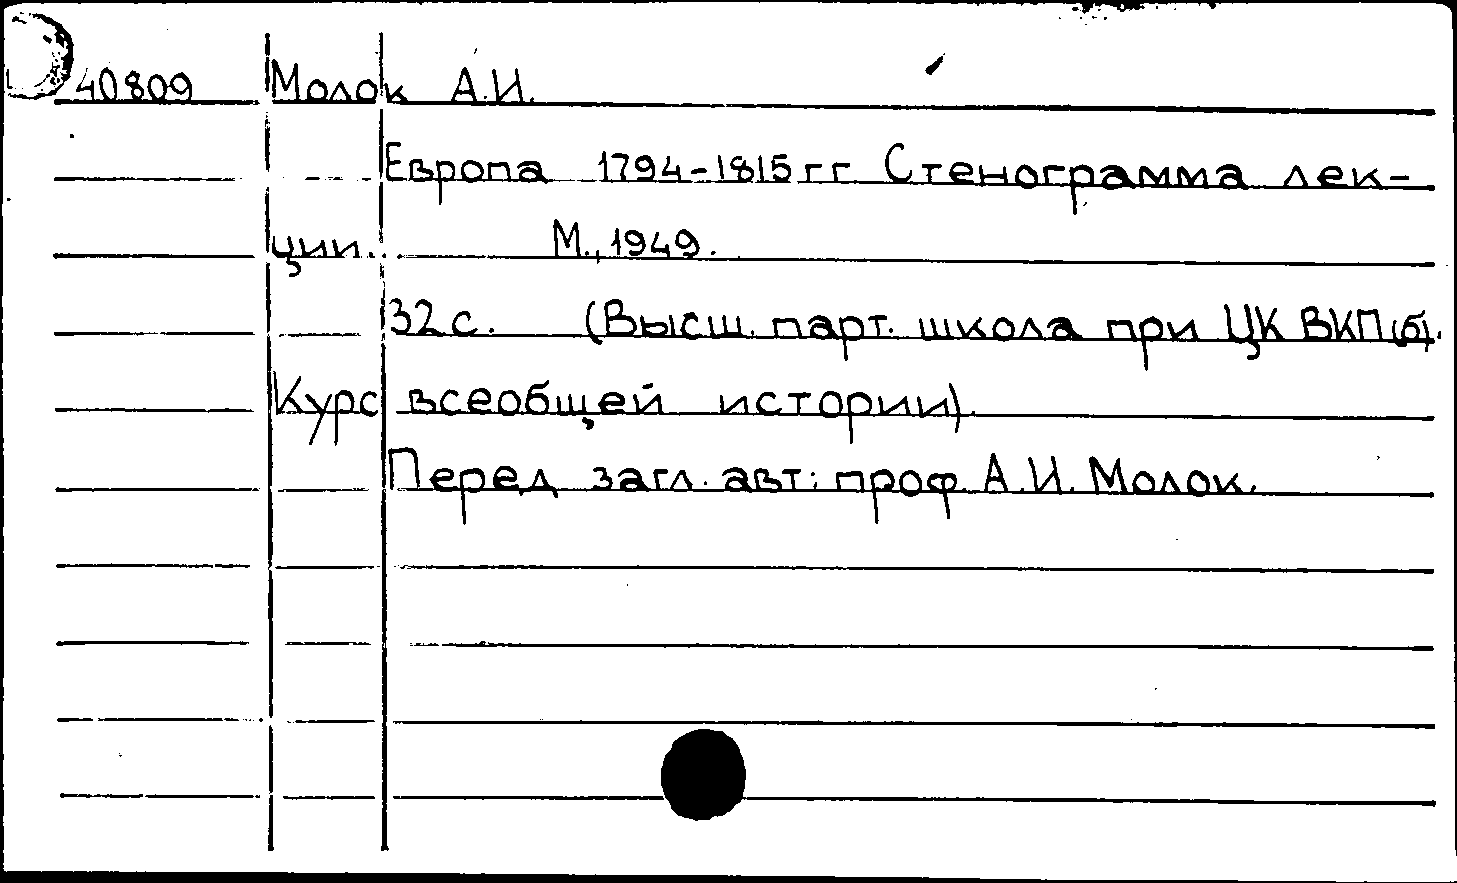 40809 Молок А.И.
Европа 1794-1815гг Стенограмма лек-
ции. М., 1949.
32с. (Высш. парт. школа при ЦК ВКП(б).
Курс всеобщей истории).
Перед загл. авт: проф. А.И. Молок.